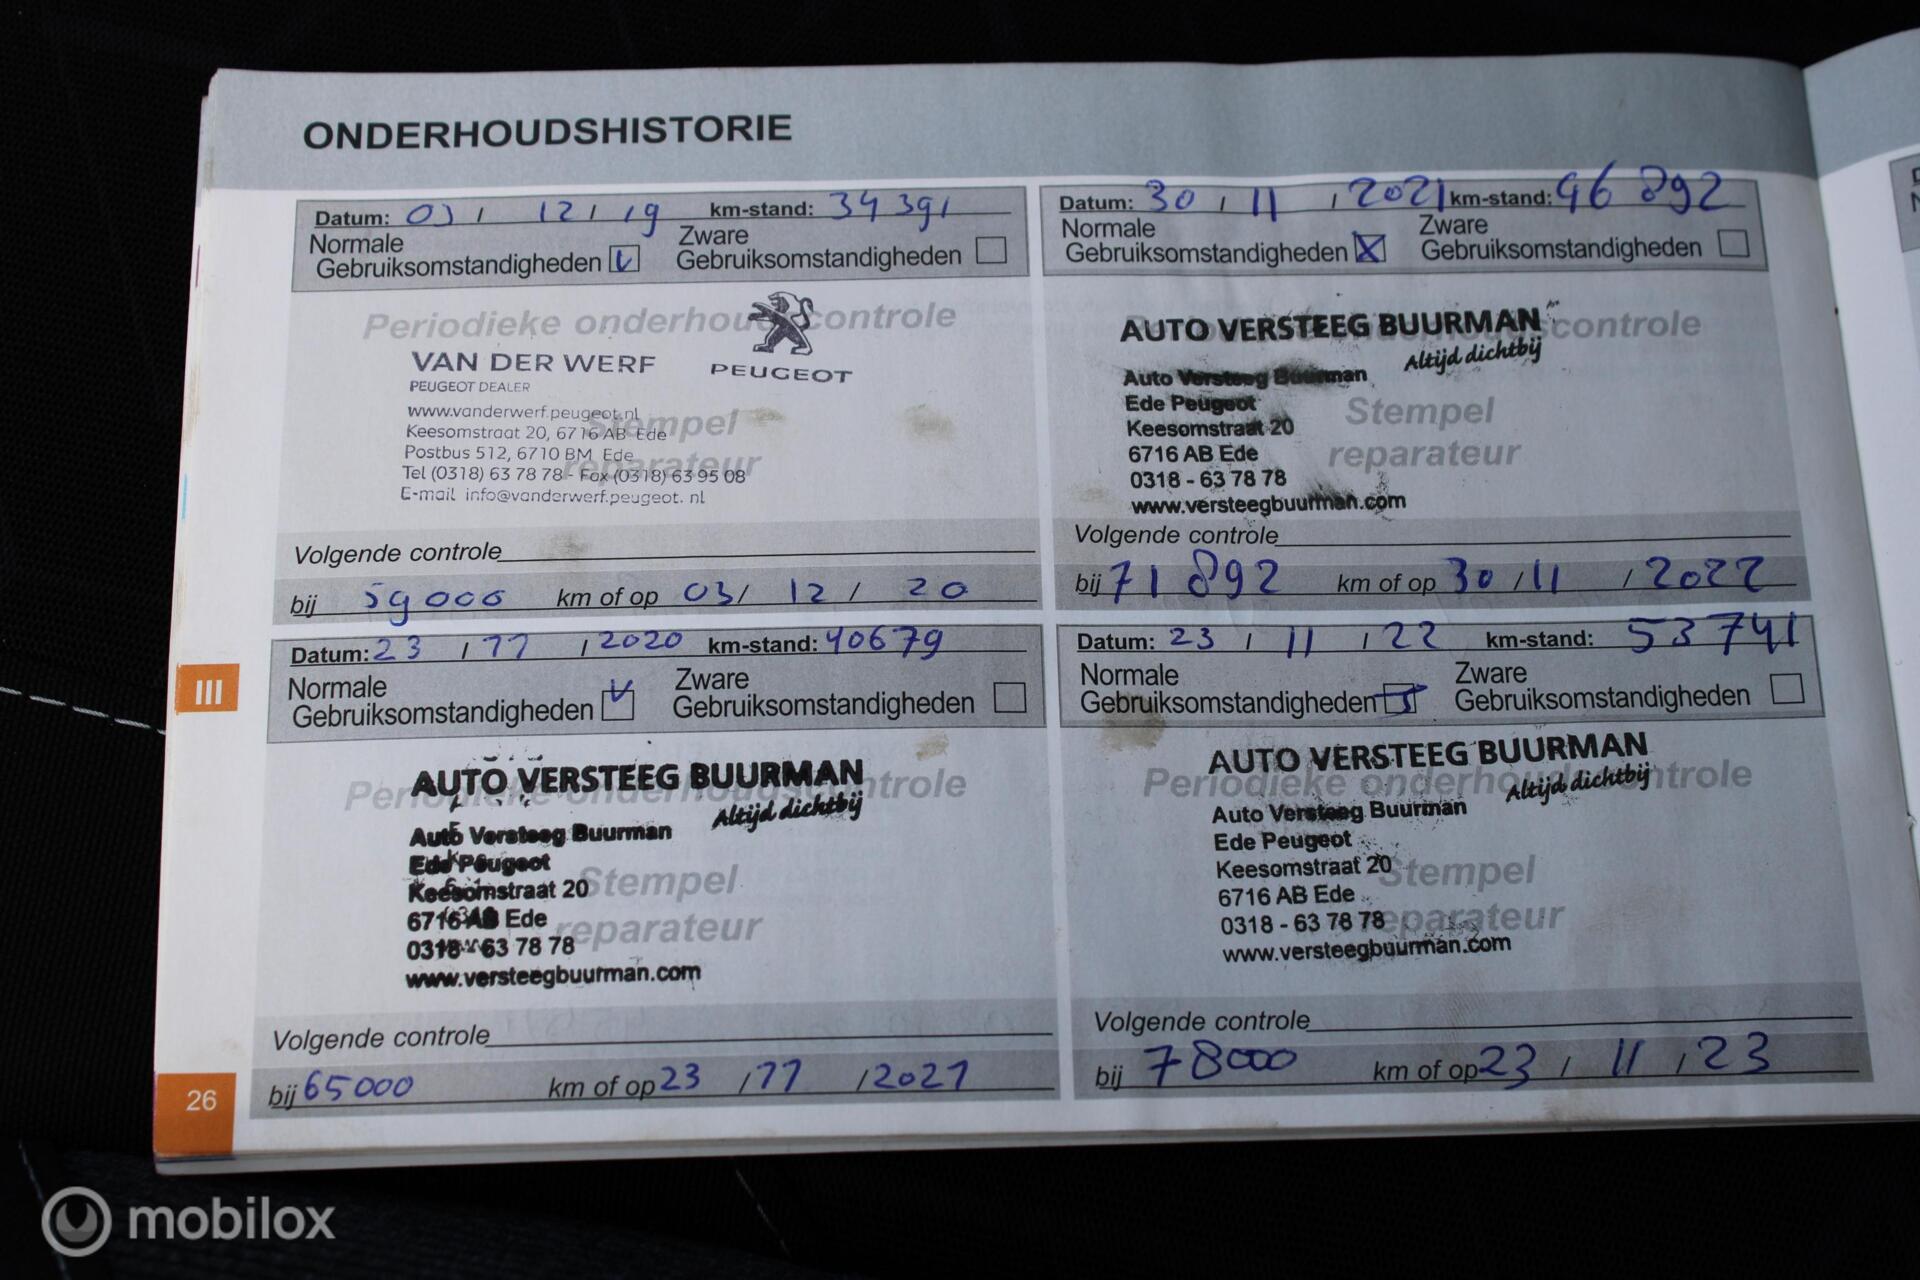 ONDERHOUDSHISTORIE
Datum: 03 / 12 / 19 km-stand: 34391
Normale Gebruiksomstandigheden
Zware Gebruiksomstandigheden
Periodieke onderhoudscontrole
VAN DER WERF
PEUGEOT DEALER
PEUGEOT
www.vanderwerf.peugeot.nl
Keesomstraat 20, 6716 AB Ede
Postbus 512, 6710 BM Ede
Tel (0318) 63 78 78 - Fax (0318) 63 95 08
E-mail info@vanderwerf.peugeot.nl
Stempel
reparateur
Volgende controle
bij 59000 km of op 03 / 12 / 20
Datum: 23 / 11 / 2020 km-stand: 40679
Normale Gebruiksomstandigheden
Zware Gebruiksomstandigheden
Periodieke onderhoudscontrole
AUTO VERSTEEG BUURMAN
Altijd dichtbij
Auto Versteeg Buurman
Ede Peugeot
Keesomstraat 20
6716 AB Ede
0318 - 63 78 78
www.versteegbuurman.com
Stempel
reparateur
Volgende controle
bij 65000 km of op 23 / 11 / 2021
Datum: 30 / 11 / 2021 km-stand: 46892
Normale Gebruiksomstandigheden
Zware Gebruiksomstandigheden
Periodieke onderhoudscontrole
AUTO VERSTEEG BUURMAN
Altijd dichtbij
Auto Versteeg Buurman
Ede Peugeot
Keesomstraat 20
6716 AB Ede
0318 - 63 78 78
www.versteegbuurman.com
Stempel
reparateur
Volgende controle
bij 71892 km of op 30 / 11 / 2022
Datum: 23 / 11 / 22 km-stand: 53741
Normale Gebruiksomstandigheden
Zware Gebruiksomstandigheden
Periodieke onderhoudscontrole
AUTO VERSTEEG BUURMAN
Altijd dichtbij
Auto Versteeg Buurman
Ede Peugeot
Keesomstraat 20
6716 AB Ede
0318 - 63 78 78
www.versteegbuurman.com
Stempel
reparateur
Volgende controle
bij 78000 km of op 23 / 11 / 23
III
26
mobilox